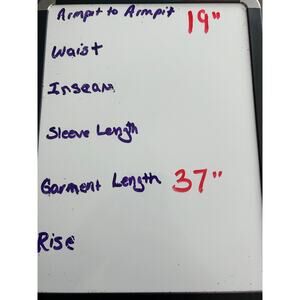 Armpit to Armpit 19"
Waist
Inseam
Sleeve Length
Garment Length 37"
Rise